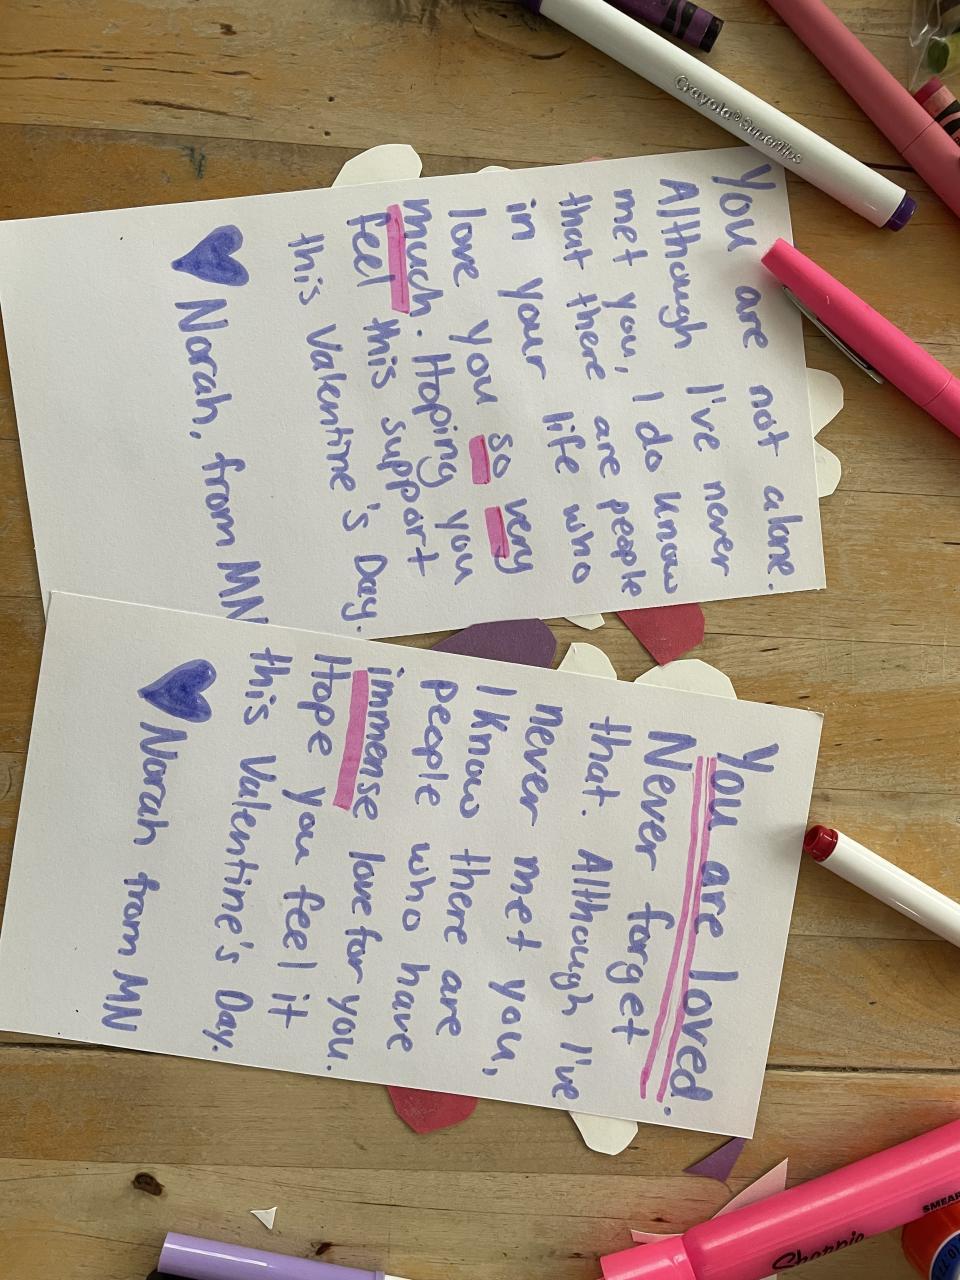 You are not alone.
Although I've never
met you, I do know
that there are people
in your life who
love you so very
much. Hoping you
feel this support
this Valentine's Day.
Norah, from MN
You are loved.
Never forget
that. Although I've
never met you,
I know there are
people who have
immense love for you.
Hope you feel it
this Valentine's Day.
Norah from MN
Crayola® SuperTips
Sharpie
SMEAR